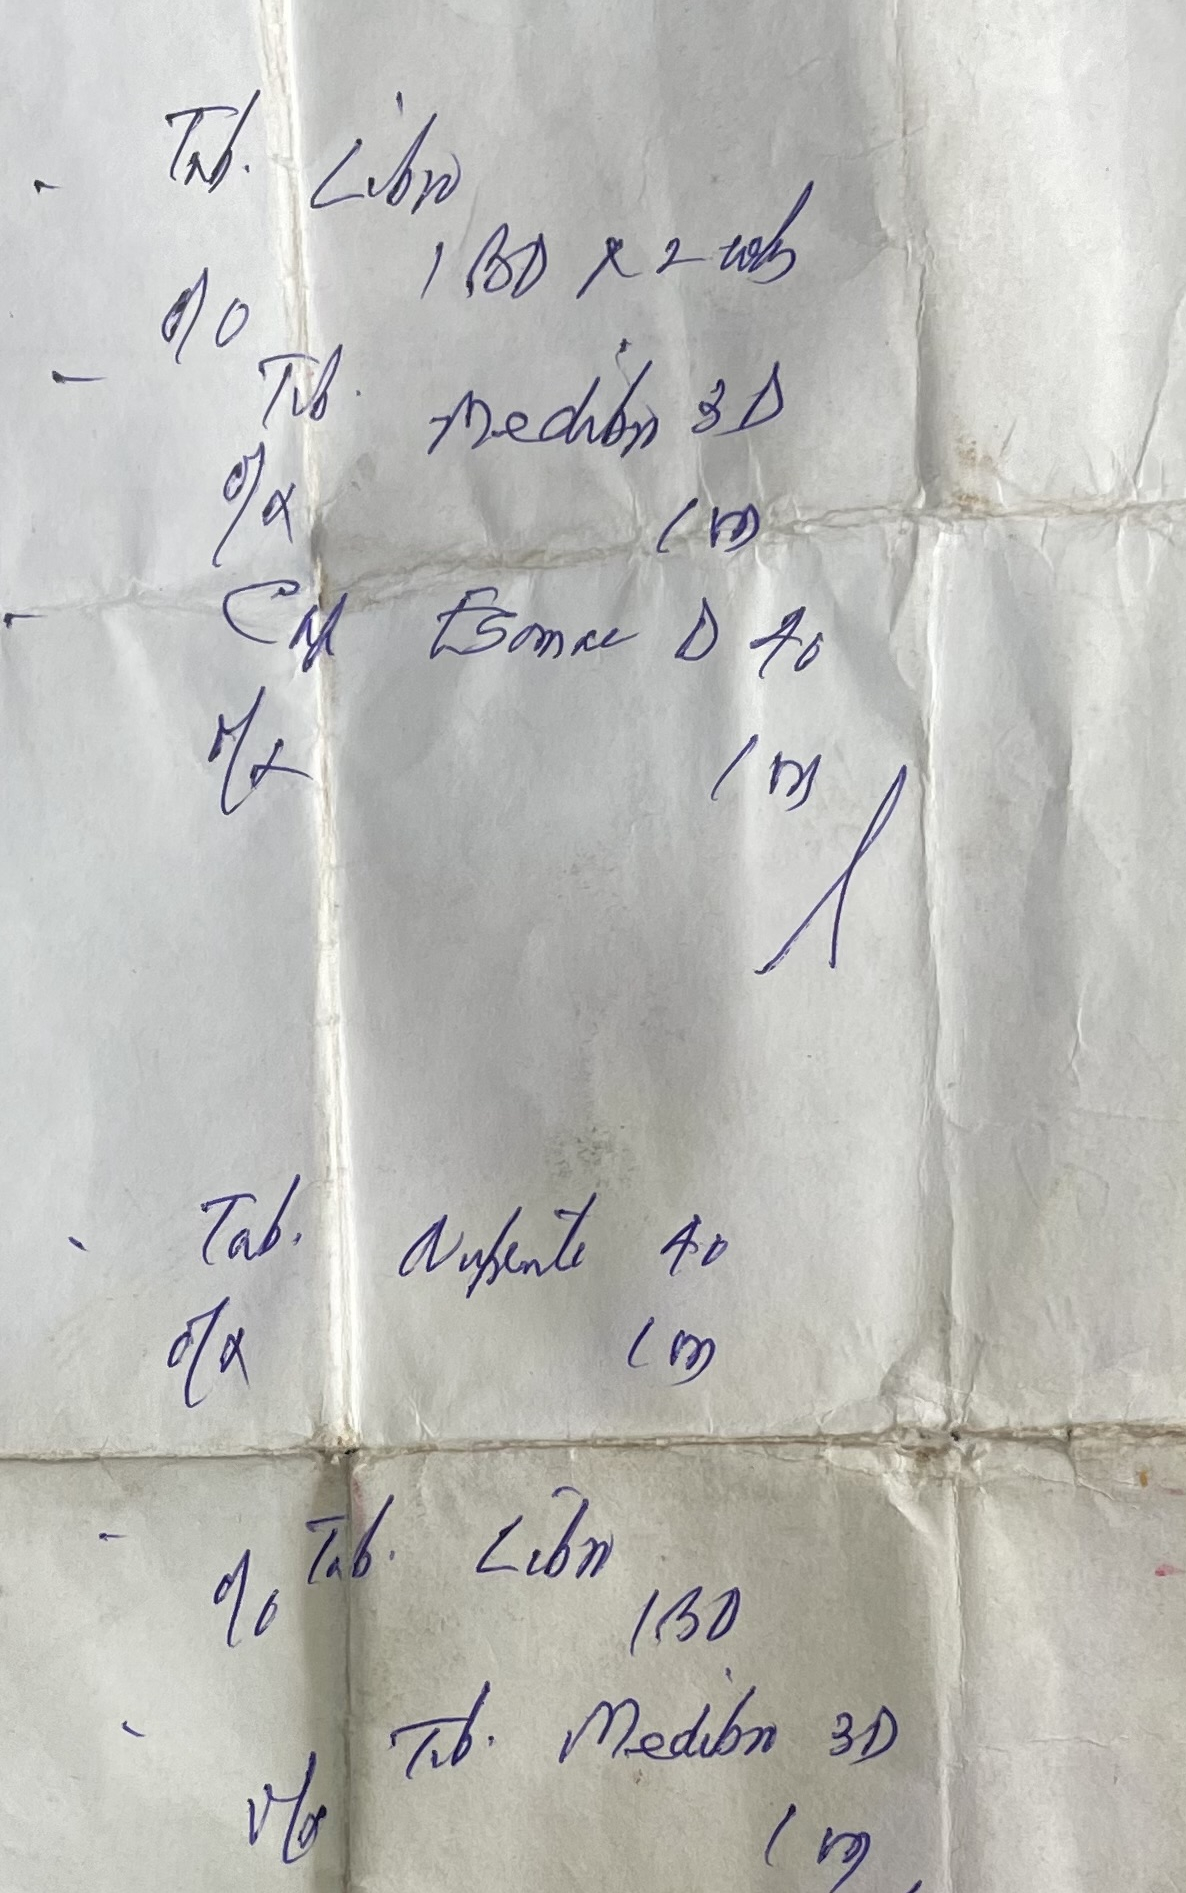 - Tab. Libro
1 BD x 2 wks
- Tab. Medibro 3D
1 m
- Cap Esomac D 40
1 m
- Tab. Nupenta 40
1 m
- Tab. Libro
1 BD
- Tab. Medibro 3D
1 m